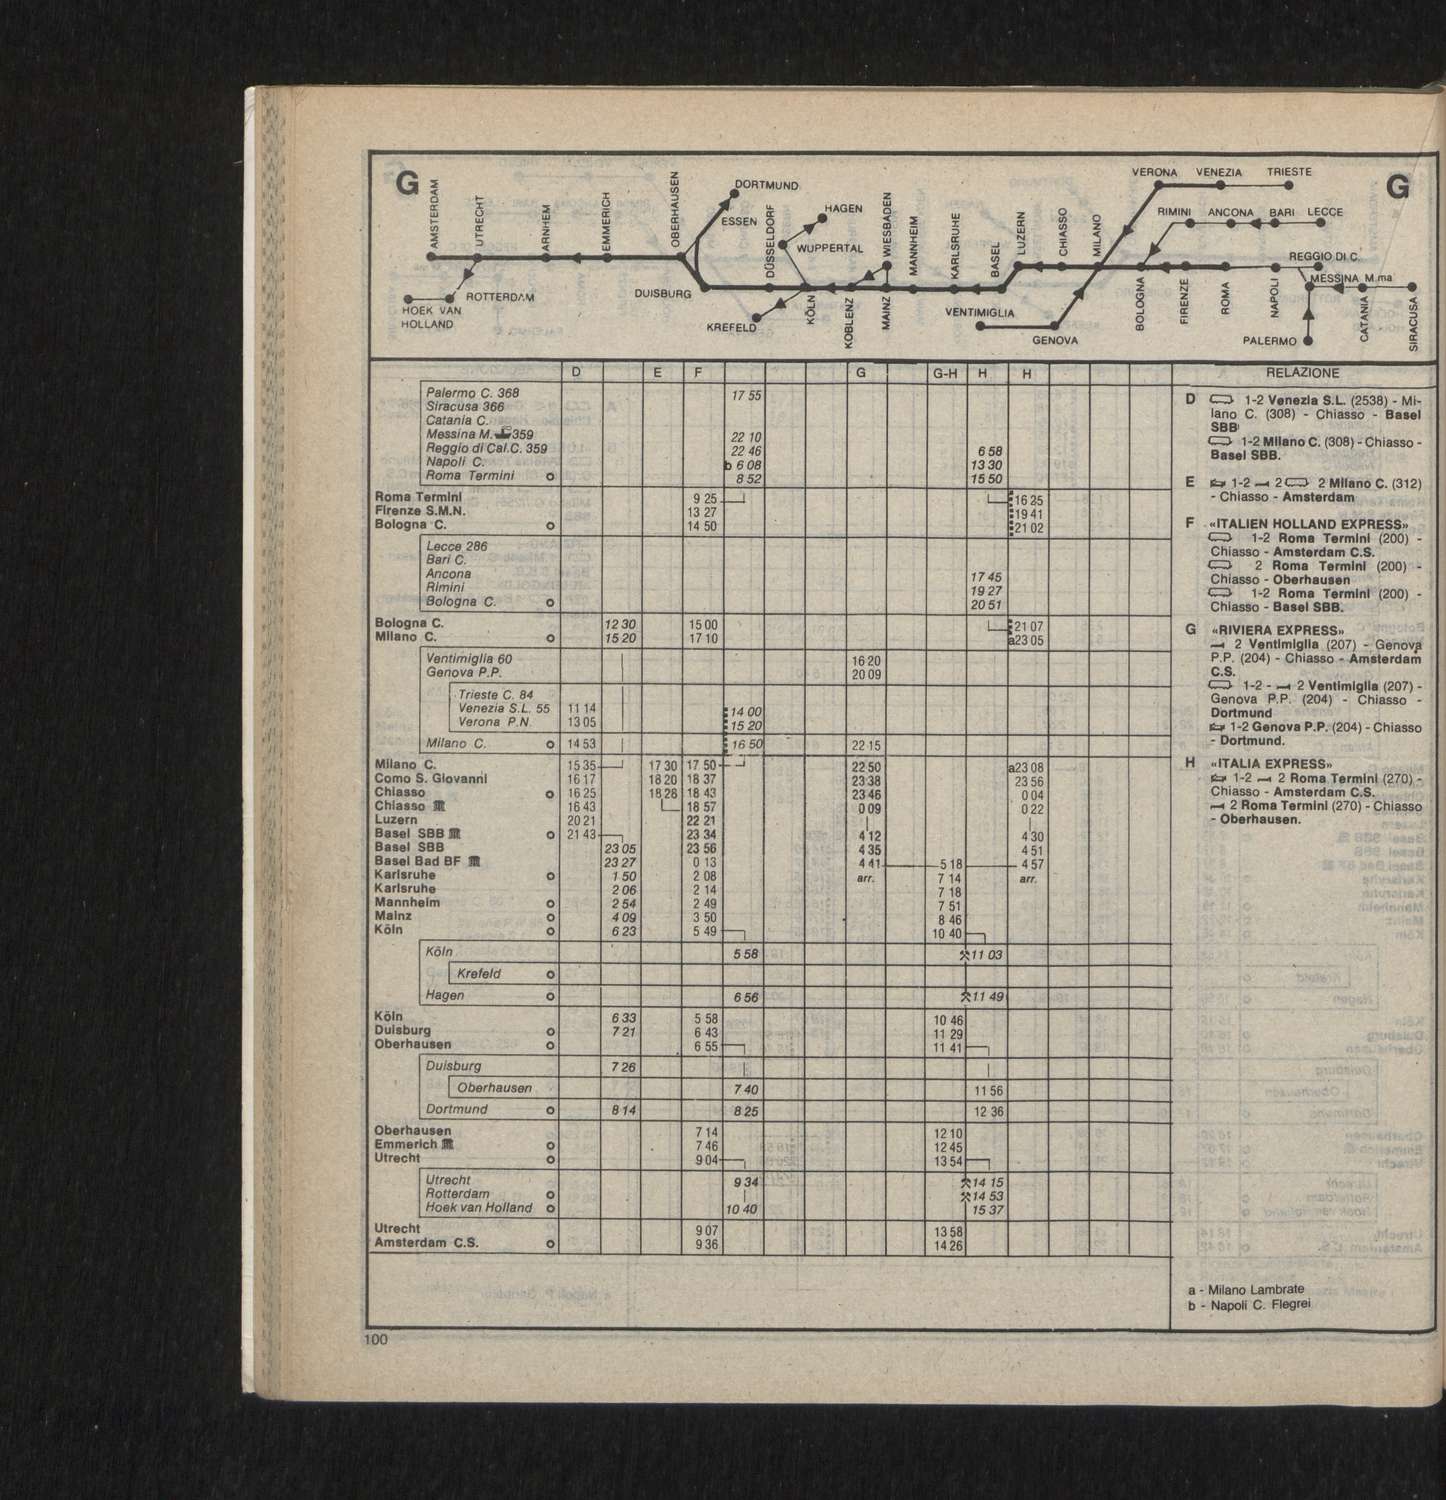 G
G
AMSTERDAM
UTRECHT
ARNHEM
EMMERICH
OBERHAUSEN
DORTMUND
ESSEN
DÜSSELDORF
HAGEN
WUPPERTAL
WIESBADEN
MANNHEIM
KARLSRUHE
BASEL
LUZERN
CHIASSO
MILANO
VERONA VENEZIA TRIESTE
RIMINI ANCONA BARI LECCE
REGGIO DI C.
MESSINA M.ma
ROTTERDAM
HOEK VAN
HOLLAND
DUISBURG
KREFELD
KÖLN
KOBLENZ
MAINZ
VENTIMIGLIA
GENOVA
BOLOGNA
FIRENZE
ROMA
NAPOLI
PALERMO
CATANIA
SIRACUSA
D E F G G-H H H RELAZIONE
Palermo C. 368 17 55
Siracusa 366
Catania C.
Messina M. 359 22 10
Reggio di Cal.C. 359 22 46 6 58
Napoli C. b 6 08 13 30
Roma Termini o 8 52 15 50
Roma Termini 9 25 16 25
Firenze S.M.N. 13 27 19 41
Bologna C. o 14 50 21 02
Lecce 286
Bari C.
Ancona 17 45
Rimini 19 27
Bologna C. o 20 51
Bologna C. 12 30 15 00 21 07
Milano C. o 15 20 17 10 a23 05
Ventimiglia 60 16 20
Genova P.P. 20 09
Trieste C. 84
Venezia S.L. 55 11 14 14 00
Verona P.N. 13 05 15 20
Milano C. o 14 53 16 50 22 15
Milano C. 15 35 17 30 17 50 22 50 a23 08
Como S. Giovanni 16 17 18 20 18 37 23 38 23 56
Chiasso o 16 25 18 28 18 43 23 46 0 04
Chiasso 16 43 18 57 0 09 0 22
Luzern 20 21 22 21
Basel SBB o 21 43 23 34 4 12 4 30
Basel SBB 23 05 23 56 4 35 4 51
Basel Bad BF 23 27 0 13 4 41 5 18 4 57
Karlsruhe o 1 50 2 08 arr. 7 14 arr.
Karlsruhe 2 06 2 14 7 18
Mannheim o 2 54 2 49 7 51
Mainz o 4 09 3 50 8 46
Köln o 6 23 5 49 10 40
Köln 5 58 ⚒11 03
Krefeld o
Hagen o 6 56 ⚒11 49
Köln 6 33 5 58 10 46
Duisburg o 7 21 6 43 11 29
Oberhausen o 6 55 11 41
Duisburg 7 26
Oberhausen 7 40 11 56
Dortmund o 8 14 8 25 12 36
Oberhausen 7 14 12 10
Emmerich o 7 46 12 45
Utrecht o 9 04 13 54
Utrecht 9 34 ⚒14 15
Rotterdam o ⚒14 53
Hoek van Holland o 10 40 15 37
Utrecht 9 07 13 58
Amsterdam C.S. o 9 36 14 26
D 1-2 Venezia S.L. (2538) - Mi-
lano C. (308) - Chiasso - Basel
SBB
1-2 Milano C. (308) - Chiasso -
Basel SBB.
E 1-2 2 2 Milano C. (312)
- Chiasso - Amsterdam
F «ITALIEN HOLLAND EXPRESS»
1-2 Roma Termini (200) -
Chiasso - Amsterdam C.S.
2 Roma Termini (200) -
Chiasso - Oberhausen
1-2 Roma Termini (200) -
Chiasso - Basel SBB.
G «RIVIERA EXPRESS»
2 Ventimiglia (207) - Genova
P.P. (204) - Chiasso - Amsterdam
C.S.
1-2 - 2 Ventimiglia (207) -
Genova P.P. (204) - Chiasso -
Dortmund
1-2 Genova P.P. (204) - Chiasso
- Dortmund.
H «ITALIA EXPRESS»
1-2 2 Roma Termini (270) -
Chiasso - Amsterdam C.S.
2 Roma Termini (270) - Chiasso
- Oberhausen.
a - Milano Lambrate
b - Napoli C. Flegrei
100